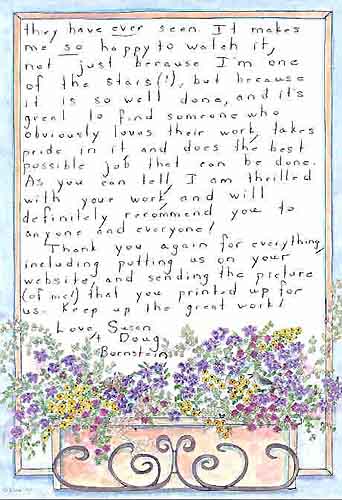 they have ever seen. It makes
me so happy to watch it,
not just because I'm one
of the stars(!), but because
it is so well done, and it's
great to find someone who
obviously loves their work, takes
pride in it and does the best
possible job that can be done.
As you can tell, I am thrilled
with your work and will
definitely recommend you to
anyone and everyone!
Thank you again for everything,
including putting us on your
website, and sending the picture
(of me!) that you printed up for
us. Keep up the great work!
Love, Susan
+ Doug
Bornstein